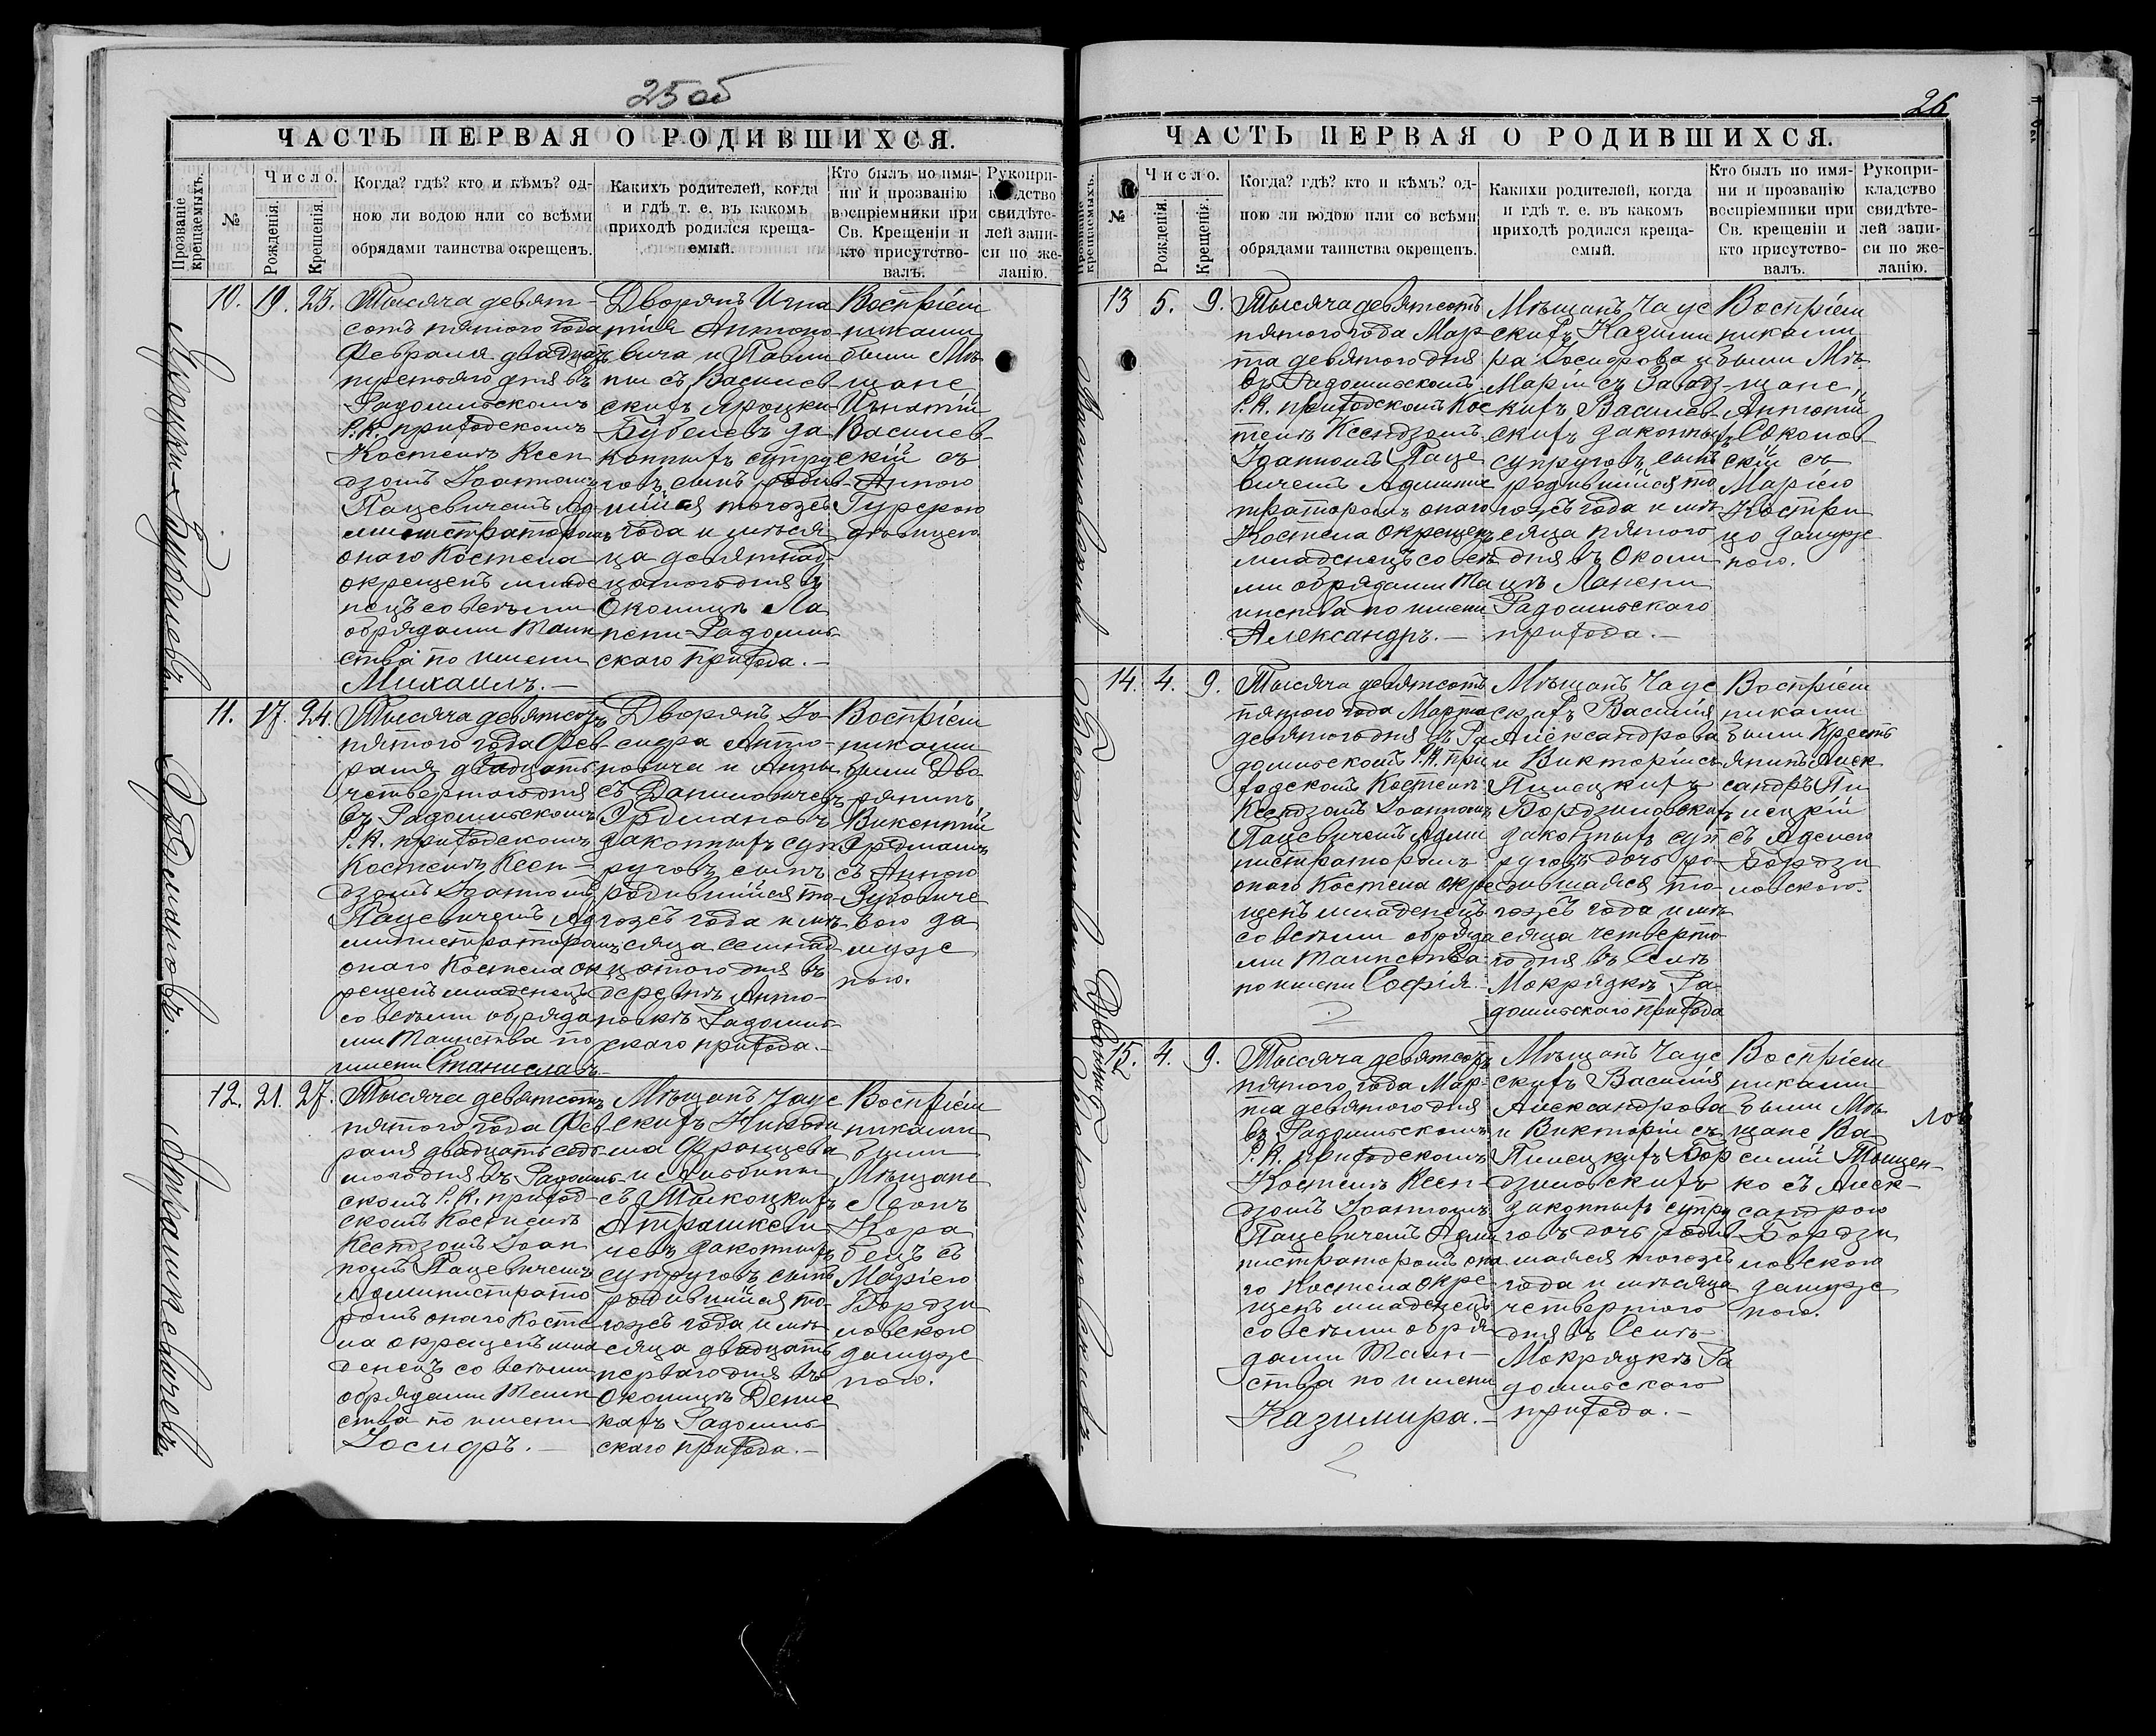 25 об
ЧАСТЬ ПЕРВАЯ О РОДИВШИХСЯ.
Прозваніе крещаемыхъ.
№
Число.
Рожденія.
Крещенія.
Когда? гдѣ? кто и кѣмъ? од-
ною ли водою или со всѣми
обрядами таинства окрещенъ.
Какихъ родителей, когда
и гдѣ т. е. въ какомъ
приходѣ родился креща-
емый.
Кто былъ по имя-
ни и прозванію
воспріемники при
Св. Крещеніи и
кто присутство-
валъ.
Рукопри-
кладство
свидѣте-
лей запи-
си по же-
ланію.
10. 19. 23.
Тысяча девят-
сотъ пятого года
Февраля двадцать
третьяго дня въ
Радомльскомъ
Р.К. приходскомъ
Костелѣ Ксен
дзомъ Іоанномъ
Пацевичемъ Ад
министраторомъ
онаго Костела
окрещенъ младе
нецъ со всѣми
обрядами Таин
ства по имени
Михаилъ.—
Дворянъ Игна
тія Антоно
вича и Павли
ны съ Василев
скихъ
Бубелевъ за
конныхъ супру
говъ сынъ родив
шійся тогожъ
года и мѣся
ца девятнад
цатого дня в
Околицѣ Ла
пени Радомль
скаго прихода.—
Воспріем
никами
были Мѣ
щане
Игнатій
Василев
скій съ
Анною
Гурскою
дѣвицею.
11. 17. 24.
Эрдмановъ.
Тысяча девятсотъ
пятого года Фев-
раля двадцать
четвертого дня
въ Радомльскомъ
Р.К. приходскомъ
Костелѣ Ксен-
дзомъ Іоанномъ
Пацевичемъ Ад
министраторомъ
онаго Костела ок
рещенъ младенецъ
со всѣми обряда
ми Таинства по
имени Станиславъ.
Дворянъ Іо
сифа Анто-
новича и Анны
съ Даниловичевъ
Эрдмановъ
законныхъ суп
руговъ сынъ
родившійся то-
гожъ года и мѣ-
сяца семнад
цатого дня въ
деревнѣ Анто-
новкѣ Радомль
скаго прихода.—
Воспріем
никами
были Дво
рянинъ
Викентій
Эрдманъ
съ Анною
вою за
муж
ною.
12. 21. 27.
Тысяча девятсотъ
пятого года Фев
раля двадцать седь
мого дня въ Радомль-
скомъ Р.К. приход-
скомъ Костелѣ
Ксендзомъ Іоан
номъ Пацевичемъ
Администрато
ромъ онаго Косте
ла окрещенъ мла
денецъ со всѣми
обрядами Таин
ства по имени
Іосифъ.—
Мѣщанъ Чаус
скихъ
Францева
и Альбины
съ
чевъ законныхъ
супруговъ сынъ
родившійся то-
гожъ года и мѣ
сяца двадцать
перваго дня въ
околицѣ
Радомль
скаго прихода.—
Воспріем
никами
были
Мѣщане
Леонъ
съ
Маріею
Бордзи
ловскою
замуж
ною.
26
ЧАСТЬ ПЕРВАЯ О РОДИВШИХСЯ.
крещаемыхъ.
№
Число.
Рожденія.
Крещенія.
Когда? гдѣ? кто и кѣмъ? од-
ною ли водою или со всѣми
обрядами таинства окрещенъ.
Какихи родителей, когда
и гдѣ т. е. въ какомъ
приходѣ родился креща-
емый.
Кто былъ но имя-
ни и прозванію
воспріемники при
Св. крещеніи и
кто присутство-
валъ.
Рукопри-
кладство
свидѣте-
лей запи-
си по же-
ланію.
13 5. 9.
Василевскихъ
Тысяча девятсотъ
пятого года Мар-
та девятого дня
въ Радомльскомъ
Р.К. приходскомъ Кос
телѣ Ксендзомъ
Іоанномъ Паце
вичемъ Админис
траторомъ онаго
Костела окрещенъ
младенецъ со всѣ
ми обрядами Та
инства по имени
Александръ.—
Мѣщанъ Чаус
скихъ Казими
ра Іосифова и
Маріи съ
скихъ Василев
скихъ законныхъ
супруговъ сынъ
родившійся то
гожъ года и мѣ
сяца пятого
дня въ Околи
цѣ Лапени
Радомльскаго
прихода.—
Воспріем
никами
были Мѣ
щане
Антоній
Соколов
скій съ
Маріею
замуж
ною.
14. 4. 9.
Бордзиловскихъ
Тысяча девятсотъ
пятого года Марта
девятого дня въ Ра
домльскомъ Р.К. при
ходскомъ Костелѣ
Ксендзомъ Іоанномъ
Пацевичемъ Адми
нистраторомъ
онаго Костела окре
щенъ младенецъ
со всѣми обряда
ми Таинства
по имени Софія.
2
Мѣщанъ Чаус
скихъ Василія
Александрова
и Викторіи съ
Пилецкихъ
Бордзиловскихъ
законныхъ суп
руговъ дочь ро-
дившаяся то-
гожъ года и мѣ
сяца четверто
го дня въ Селѣ
Мокрядкѣ Ра
домльскаго прихода
Воспріем
никами
были Кресть
янинъ Алек
сандръ Пи
лецкій
съ Аделею
Бордзи
ловскою.
15. 4. 9.
Двойня Бордзиловскихъ
Тысяча девятсотъ
пятого года Мар-
та девятого дня
въ Радомльскомъ
Р.К. приходскомъ
Костелѣ Ксен-
дзомъ Іоанномъ
Пацевичемъ Адми
нистраторомъ она
го Костела окре
щенъ младенецъ
со всѣми обря
дами Таин-
ства по имени
Казимира.—
2
Мѣщанъ Чаус
скихъ Василія
Александрова
и Викторіи съ
Пилецкихъ Бор
дзиловскихъ
законныхъ супру
говъ дочь родив
шаяся тогожъ
года и мѣсяца
четвертого
дня въ Селѣ
Мокрядкѣ Ра
домльскаго
прихода.—
Воспріем
никами
были Мѣ
щане Ва
силій Тыщен-
ко съ Алек-
сандрою
Бордзи
ловскою
замуж
ною.